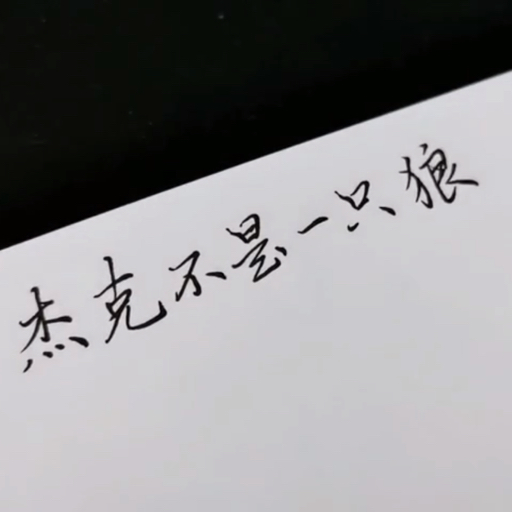 杰克不是一只狼